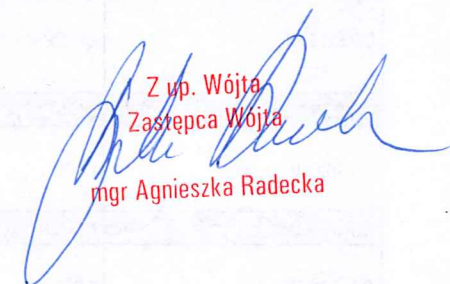 Z up. Wójta
Zastępca Wójta
mgr Agnieszka Radecka